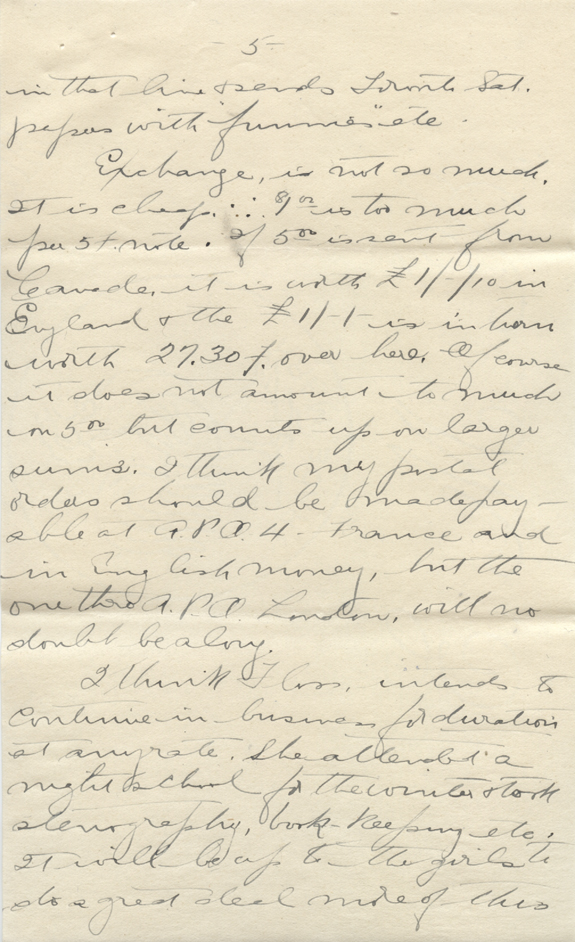 - 5 -
in that line & sends Toronto Sat.
papers with "funnies" etc.
Exchange, is not so much.
It is cheap. ∴ is too much
per 5 f. note. If 5.00 is sent from
Canada, it is worth £1/-/10 in
England & the £1/-/- is in turn
worth 27.30 f. over here. Of course
it does not amount to much
on 5.00 but counts up on larger
sums. I think my postal
orders should be made pay-
able at A.P.O. 4 - France and
in English money, but the
one thro A.P.O. London, will no
doubt be along.
I think Floss, intends to
continue in business for duration
at any rate. She attended a
night school for the winter & took
stenography, book-keeping etc.
It will be up to the girls to
do a great deal more of this